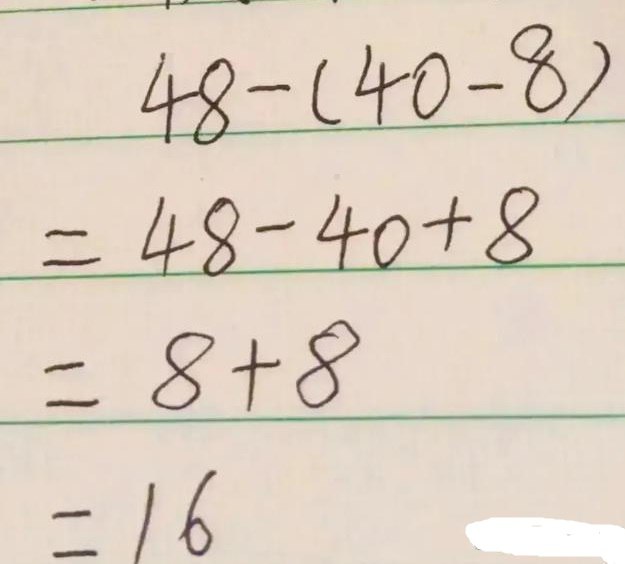 48-(40-8)
=48-40+8
=8+8
=16